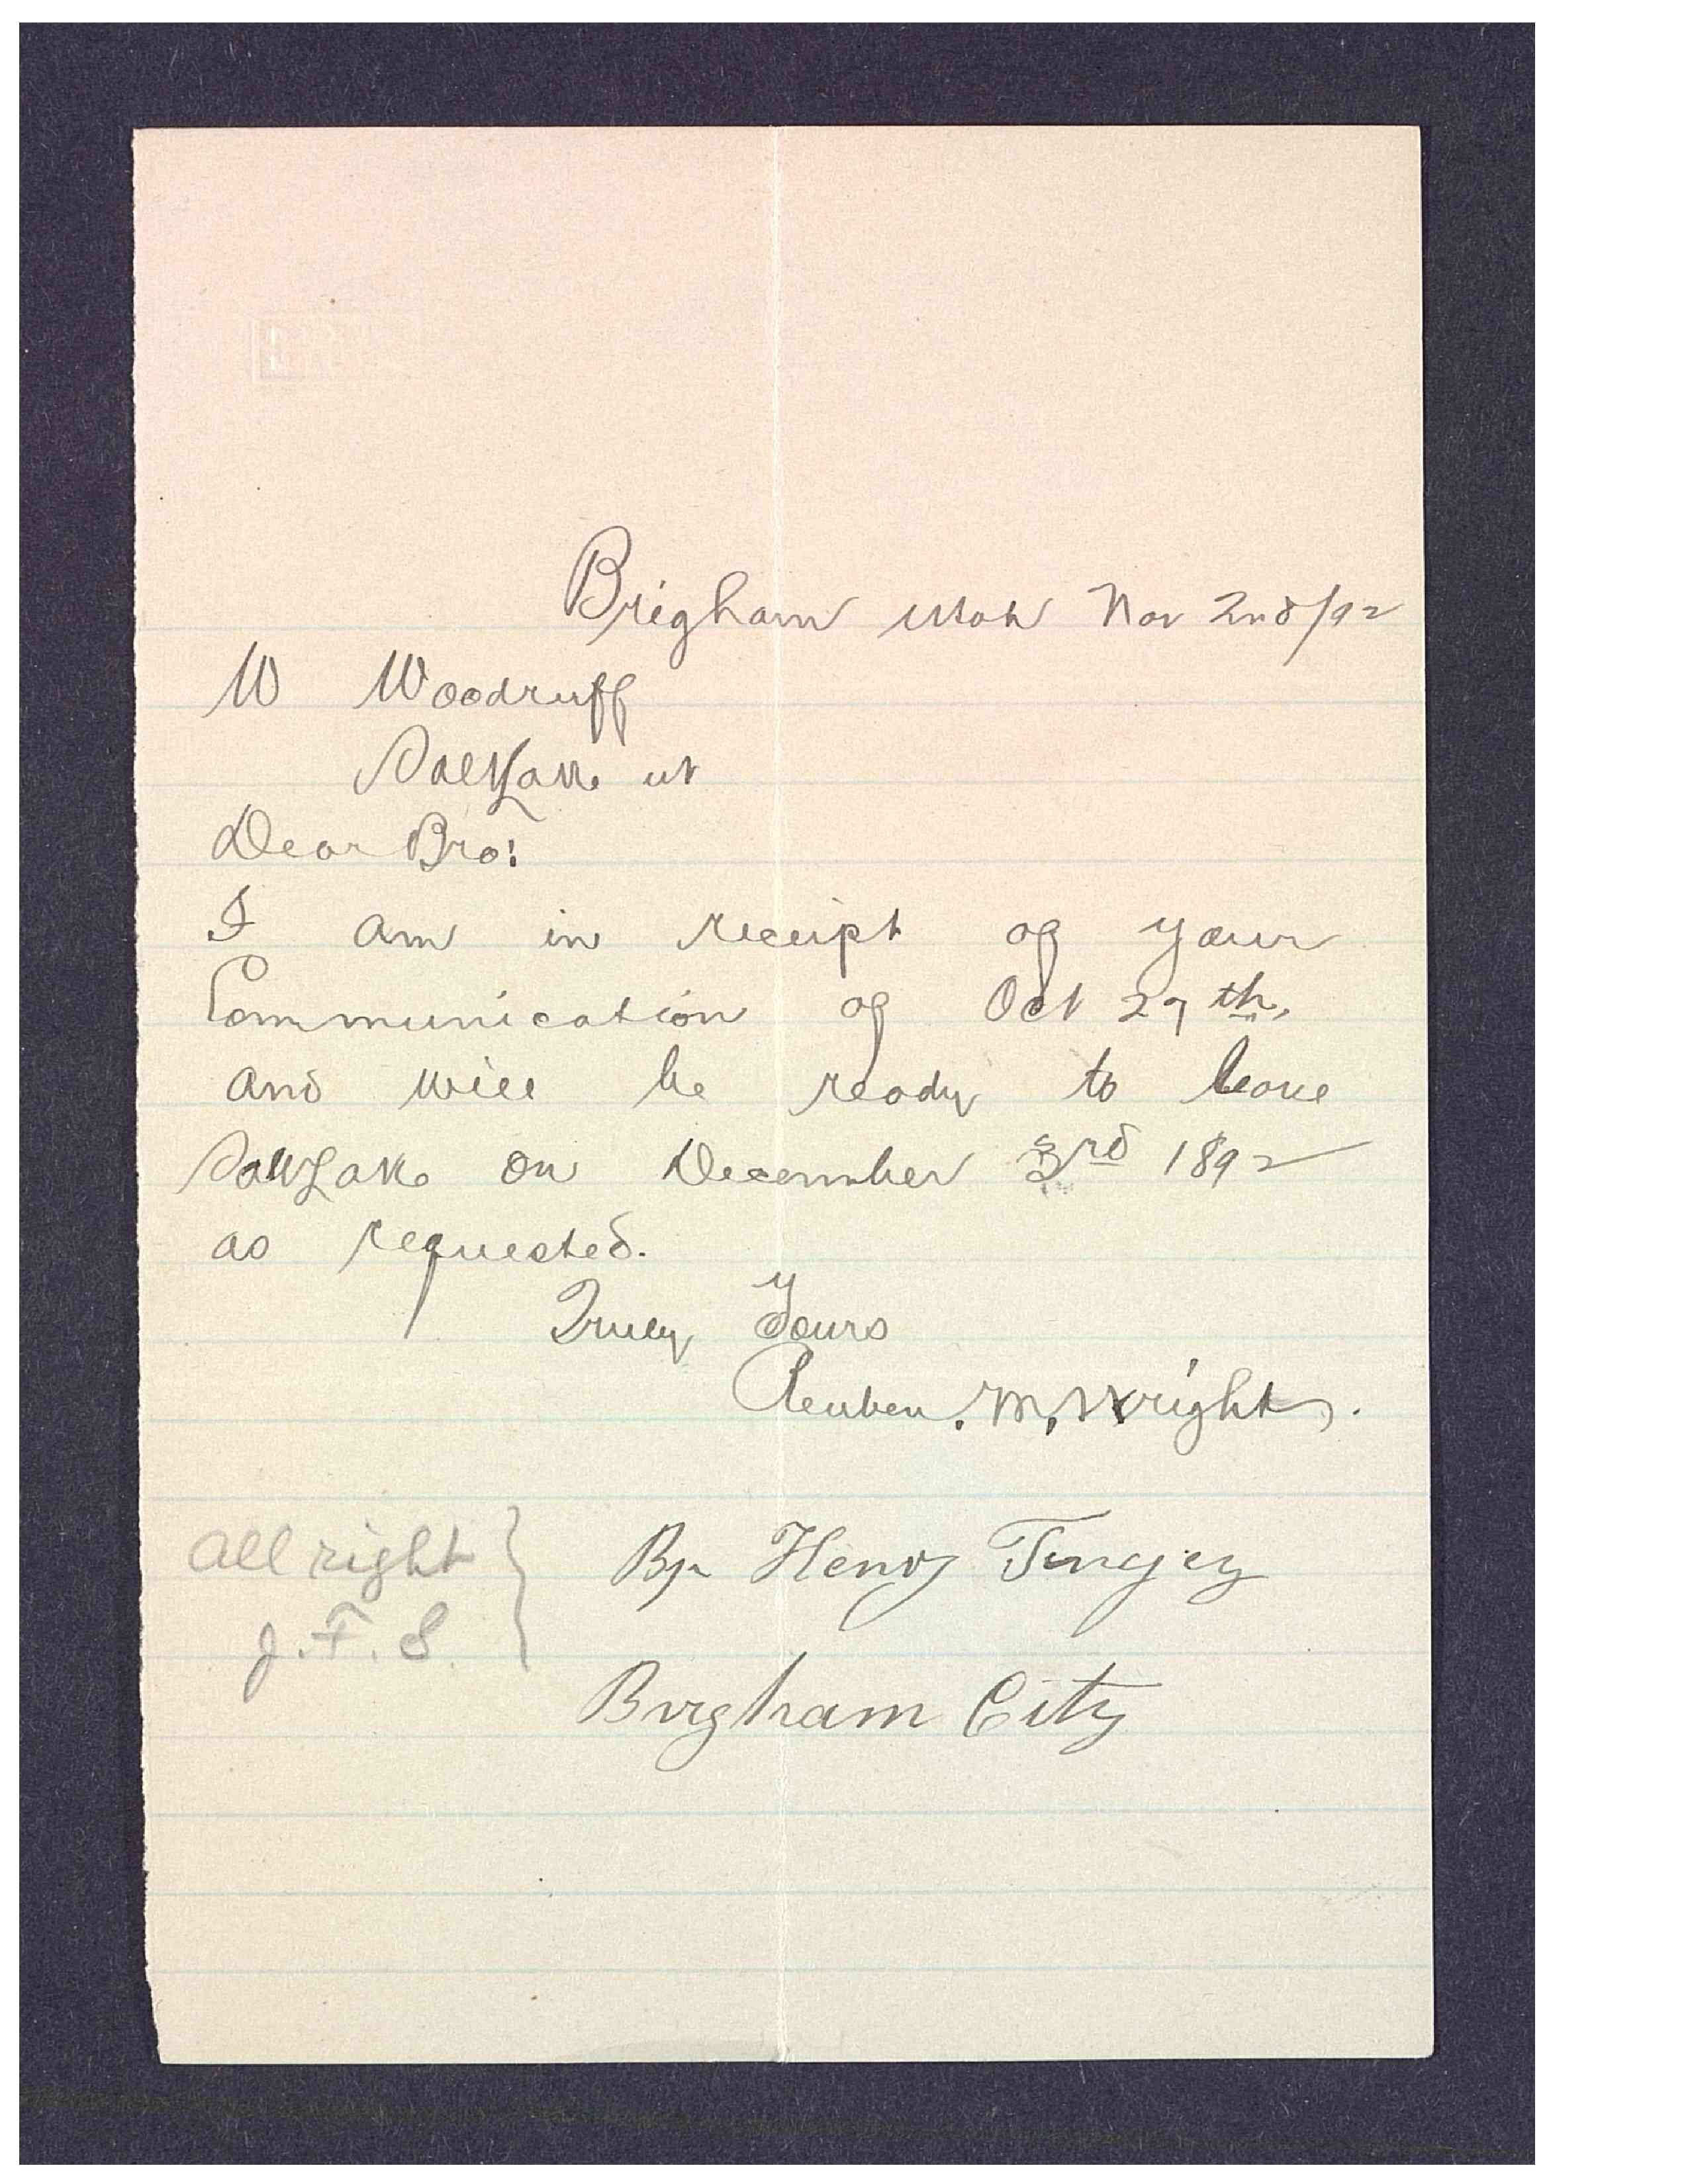 Brigham Utah Nov 2nd/92
W Woodruff
SaltLake ut
Dear Bro:
I am in receipt of your
Communication of Oct 29th,
and will be ready to leave
SaltLake on December 3rd 1892
as requested.
Truly Yours
Reuben. M, Wright.
All right
J. F. S.
Bp Henry Tingey
Brigham City